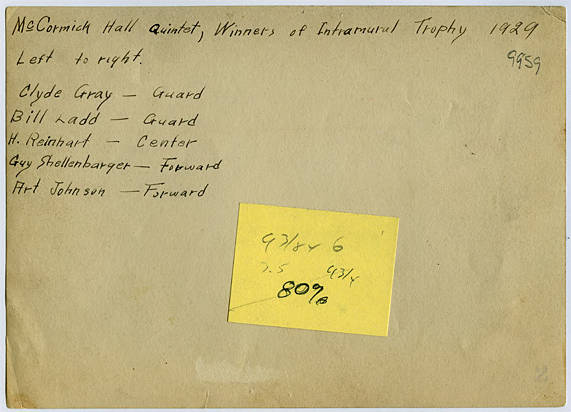 McCormick Hall Quintet, Winners of Intramural Trophy 1929
9959
Left to right.
Clyde Gray — Guard
Bill Ladd — Guard
H. Reinhart — Center
Guy Shellenbarger — Forward
Art Johnson — Forward
7.5 93/4
80%
2